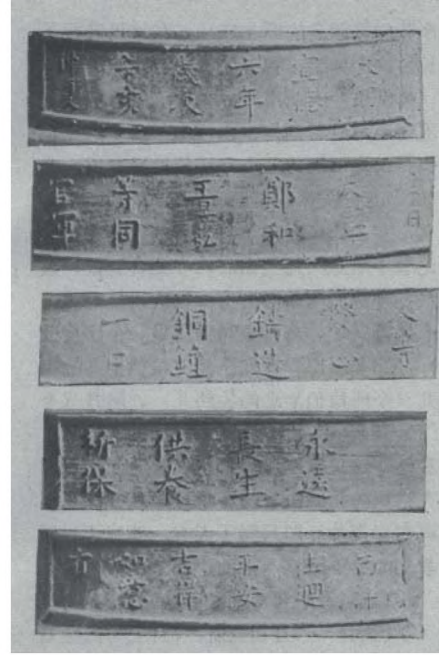 大明宣德六年歲次辛亥仲夏
日太監鄭和王景弘等同官軍
人等發心鑄造銅鐘一口
永遠長生供養祈保
西洋往迴平安吉祥如意者